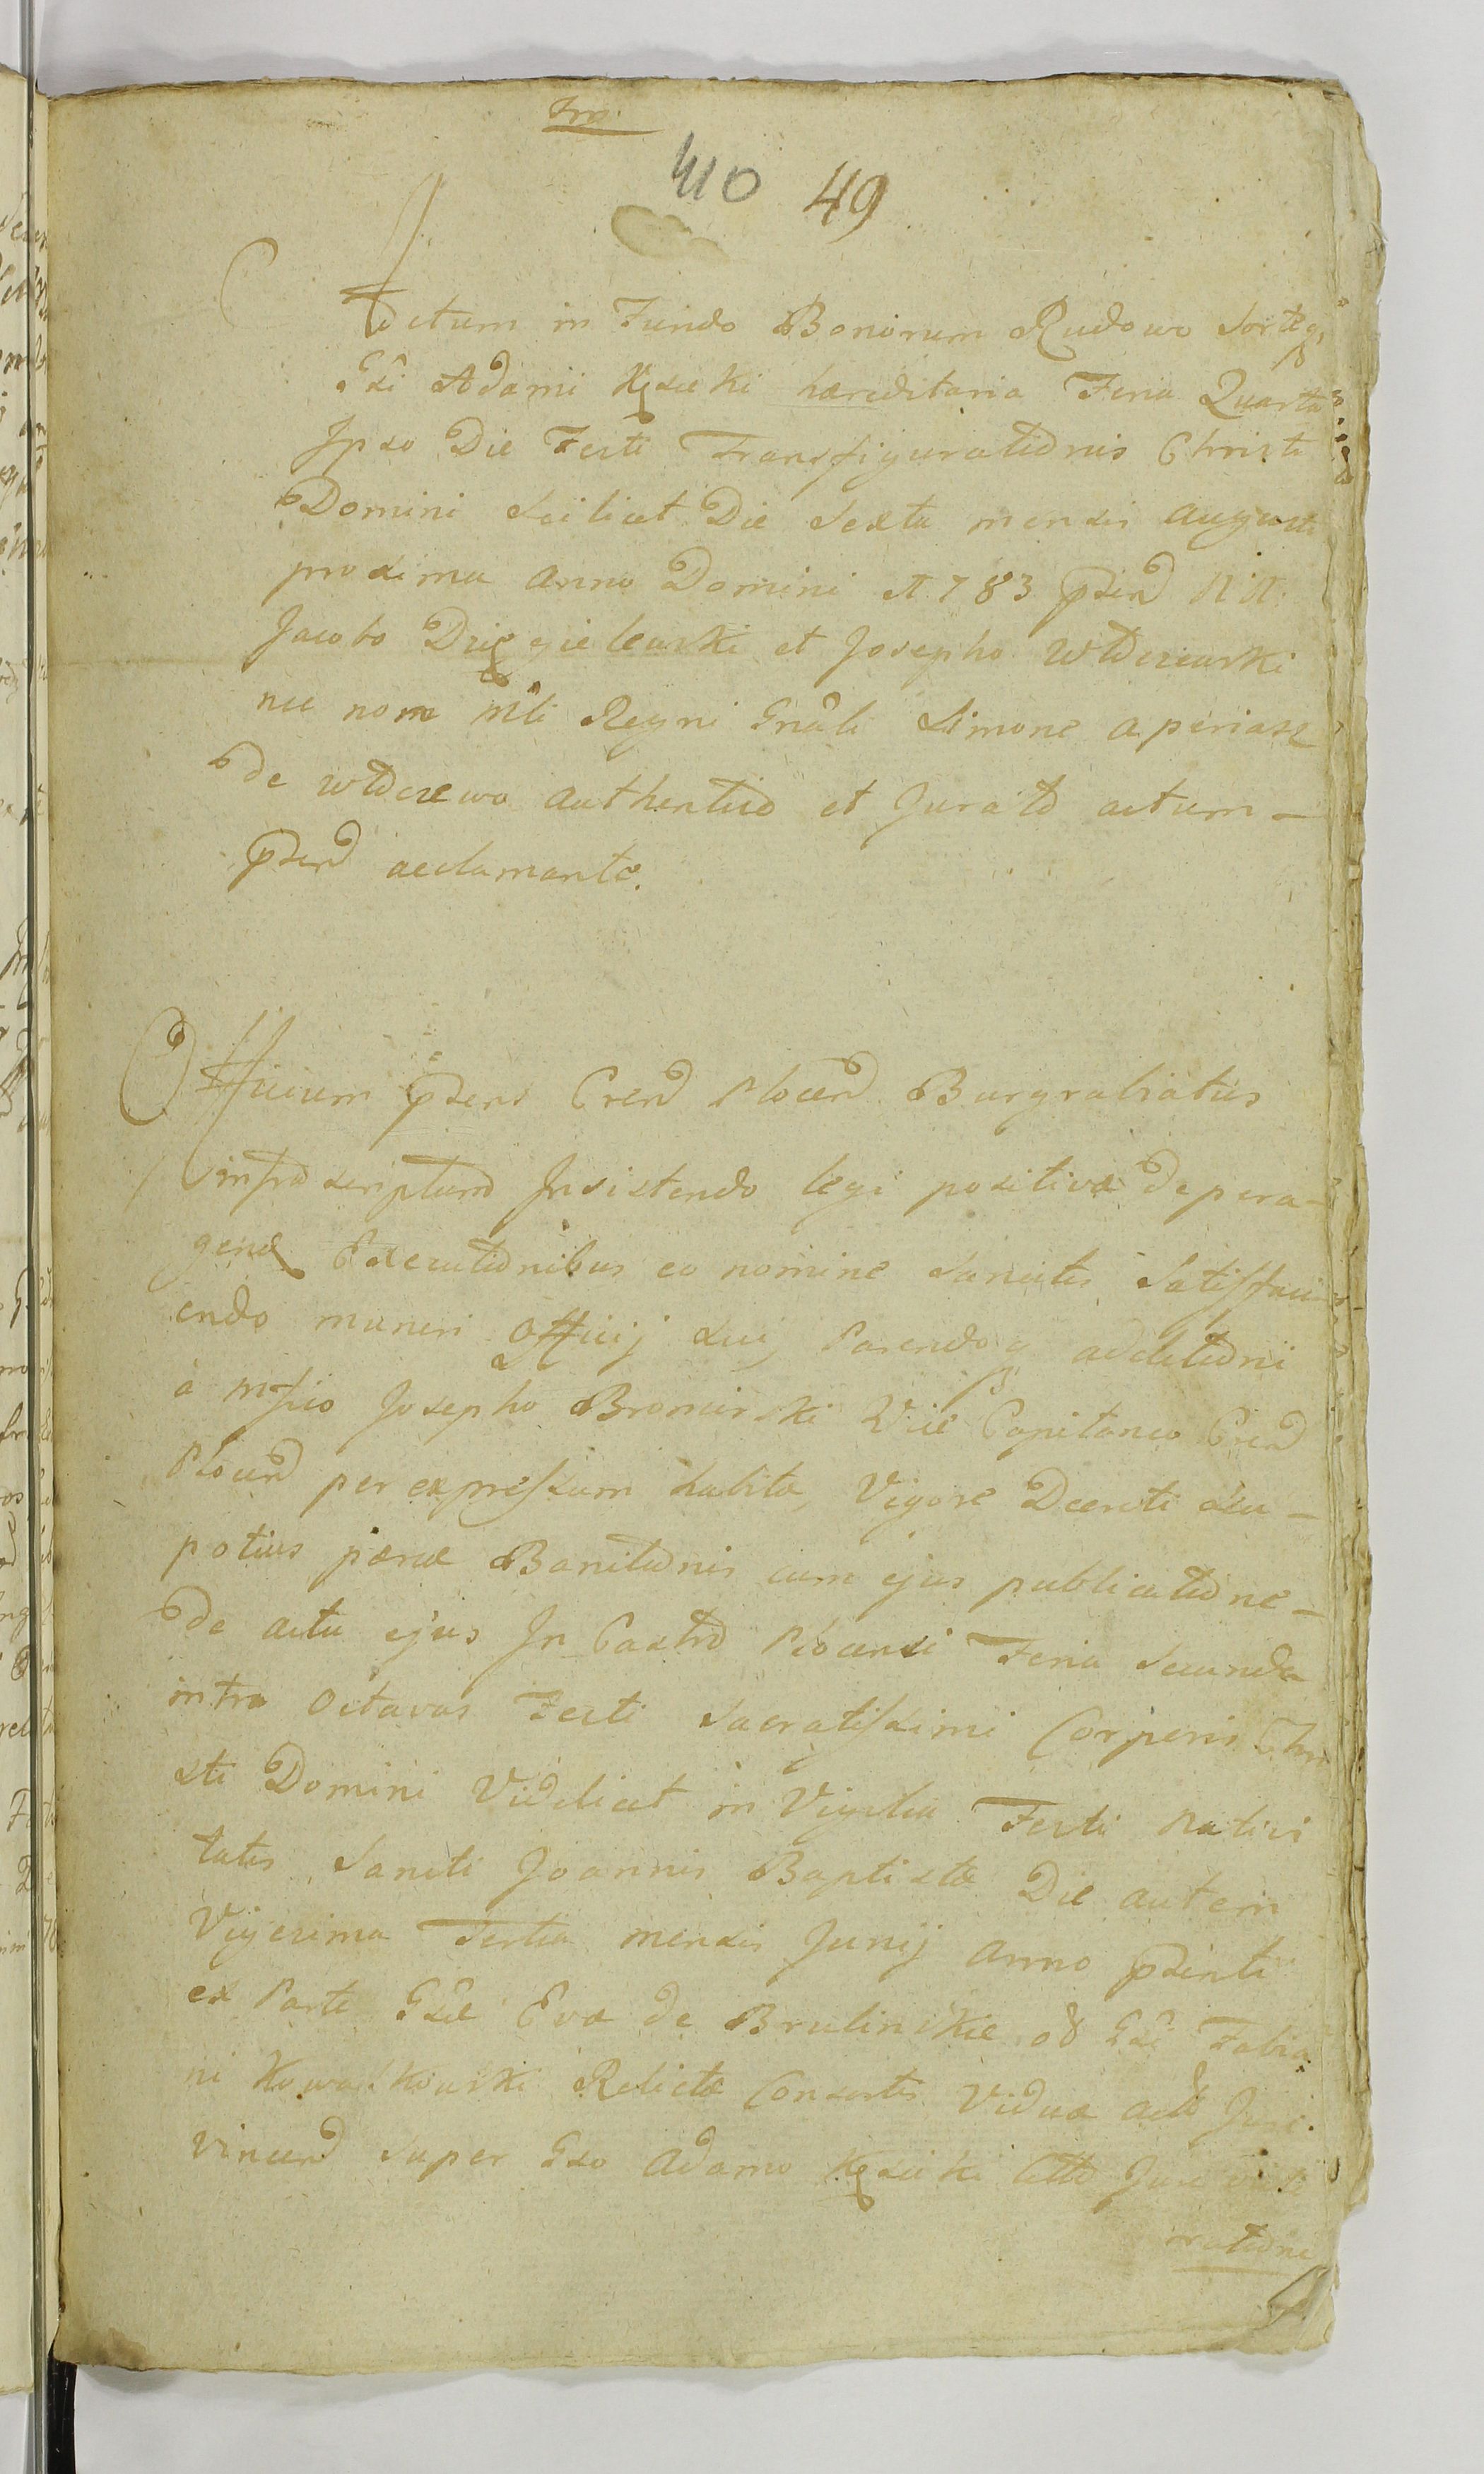 410 49
Actum in Fundo Bonorum Rudowo Sortisq,
Gsi Adami Kęsicki hæreditaria Feria Quarta
Ipso Die Festi Transfigurationis Christi
Domini Scilicet Die Sexta mensis Augusti
proxima Anno Domini 1783 pſend NN.
Jacobo Dzięgielewski et Josepho Wtoczewski
nec non Mti Regni Gnâli Simone a
de Wtoczewo Authentico et Jurato actum –
pſend acclamante.
Officium pſens Cren Plocen Burgrabiatus
infrascriptum Insistendo legi positivæ de pera-
gend Executionibus eo nomine Sancitis Satisfaci
endo muneri Officij sui, Parendoq, additioni
à Mſico Josepho Bromirski Vice Capitaneo Cren
Plocen per expreſsum habita, Vigore Decreti seu –
potius pœnæ Banitionis cum ejus publicatione –
de actu ejus In Castro Plocensi Feria Secunda
intra Octavas Festi Sacratiſsimi Corporis Chri
sti Domini Videlicet in Vigilia Festi Nativi
tatis Sancti Joannis Baptistæ Die autem
Vigesima Tertia mensis Junij Anno pſenti
ex Parte Gsæ Evæ de Brulinskie ol Gsi Fabia
ni Kowalkowski Relictæ Consortis Viduæ Jure
vincen Super Gso Adamo Kęsicki Jure victo
ratione